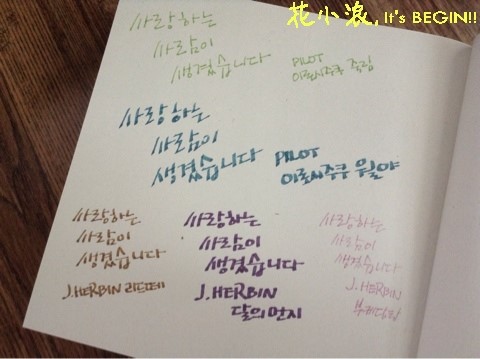 花小浪, It's BEGIN!!
사랑하는
사람이
생겼습니다
PILOT
이로시주쿠 죽림
사랑하는
사람이
생겼습니다
PILOT
이로시주쿠 우월야
사랑하는
사람이
생겼습니다
J. HERBIN 리드떼
사랑하는
사람이
생겼습니다
J. HERBIN
달의먼지
사랑하는
사람이
생겼습니다
J. HERBIN